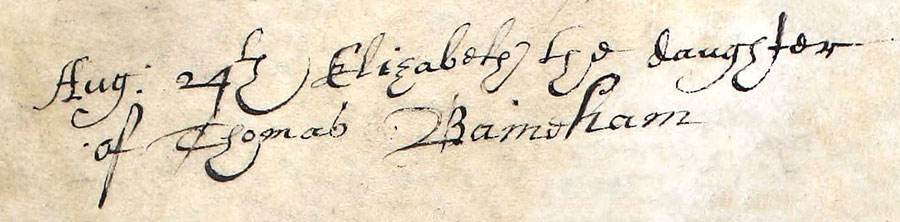 Aug: 24th Elizabeth the daughter
of Thomas